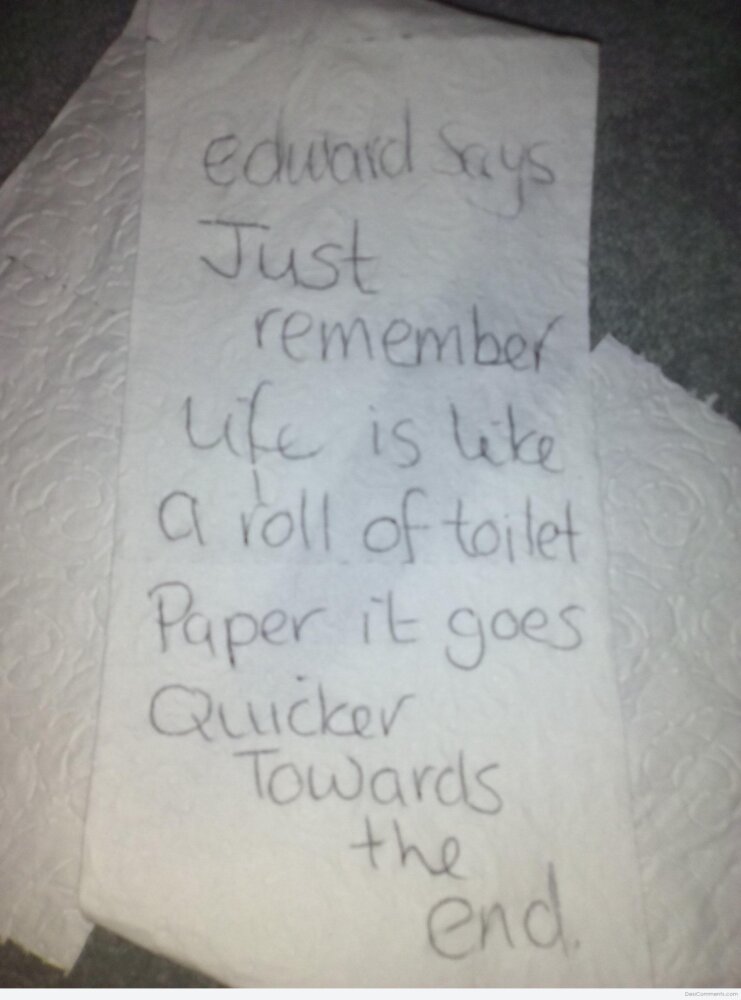 edward says
Just
remember
Life is like
a roll of toilet
Paper it goes
Quicker
Towards
the
end.
DesiComments.com